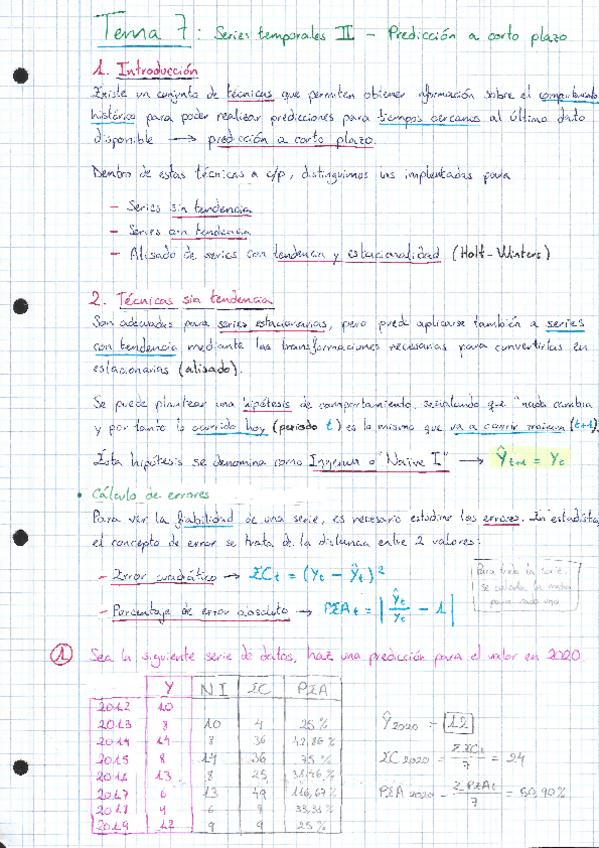 Tema 7: Series temporales II - Predicción a corto plazo
1. Introducción
Existe un conjunto de técnicas que permiten obtener información sobre el comportamiento
histórico para poder realizar predicciones para tiempos cercanos al último dato
disponible → predicción a corto plazo.
Dentro de estas técnicas a c/p, distinguimos las implentadas para
- Series sin tendencia
- Series con tendencia
- Alisado de series con tendencia y estacionalidad (Holt-Winters)
2. Técnicas sin tendencia
Son adecuadas para series estacionarias, pero puede aplicarse también a series
con tendencia mediante las transformaciones necesarias para convertirlas en
estacionarias (alisado).
Se puede plantear una hipótesis de comportamiento, señalando que "nada cambia
y por tanto lo ocurrido hoy (periodo t) es lo mismo que va a ocurrir mañana (t+1)
Esta hipótesis se denomina como Ingenua o "Naïve I" → Ŷt+1 = Yt
• Cálculo de errores
Para ver la fiabilidad de una serie, es necesario estudiar los errores. En estadística
el concepto de error se trata de la distancia entre 2 valores:
- Error cuadrático → ECt = (Yt - Ŷt)²
Para toda la serie
se calcula la media
para cada uno
- Porcentaje de error absoluto → PEAt = | Ŷt/Yt - 1 |
① Sea la siguiente serie de datos, haz una predicción para el valor en 2020
Y NI EC PEA
2012 10
2013 8 10 4 25%
2014 14 8 36 42,86%
2015 8 14 36 75%
2016 13 8 25 38,46%
2017 6 13 49 116,67%
2018 9 6 9 33,33%
2019 12 9 9 25%
Ŷ2020 = 12
EC2020 = ΣECt/7 = 24
PEA2020 = ΣPEAt/7 = 50,90%